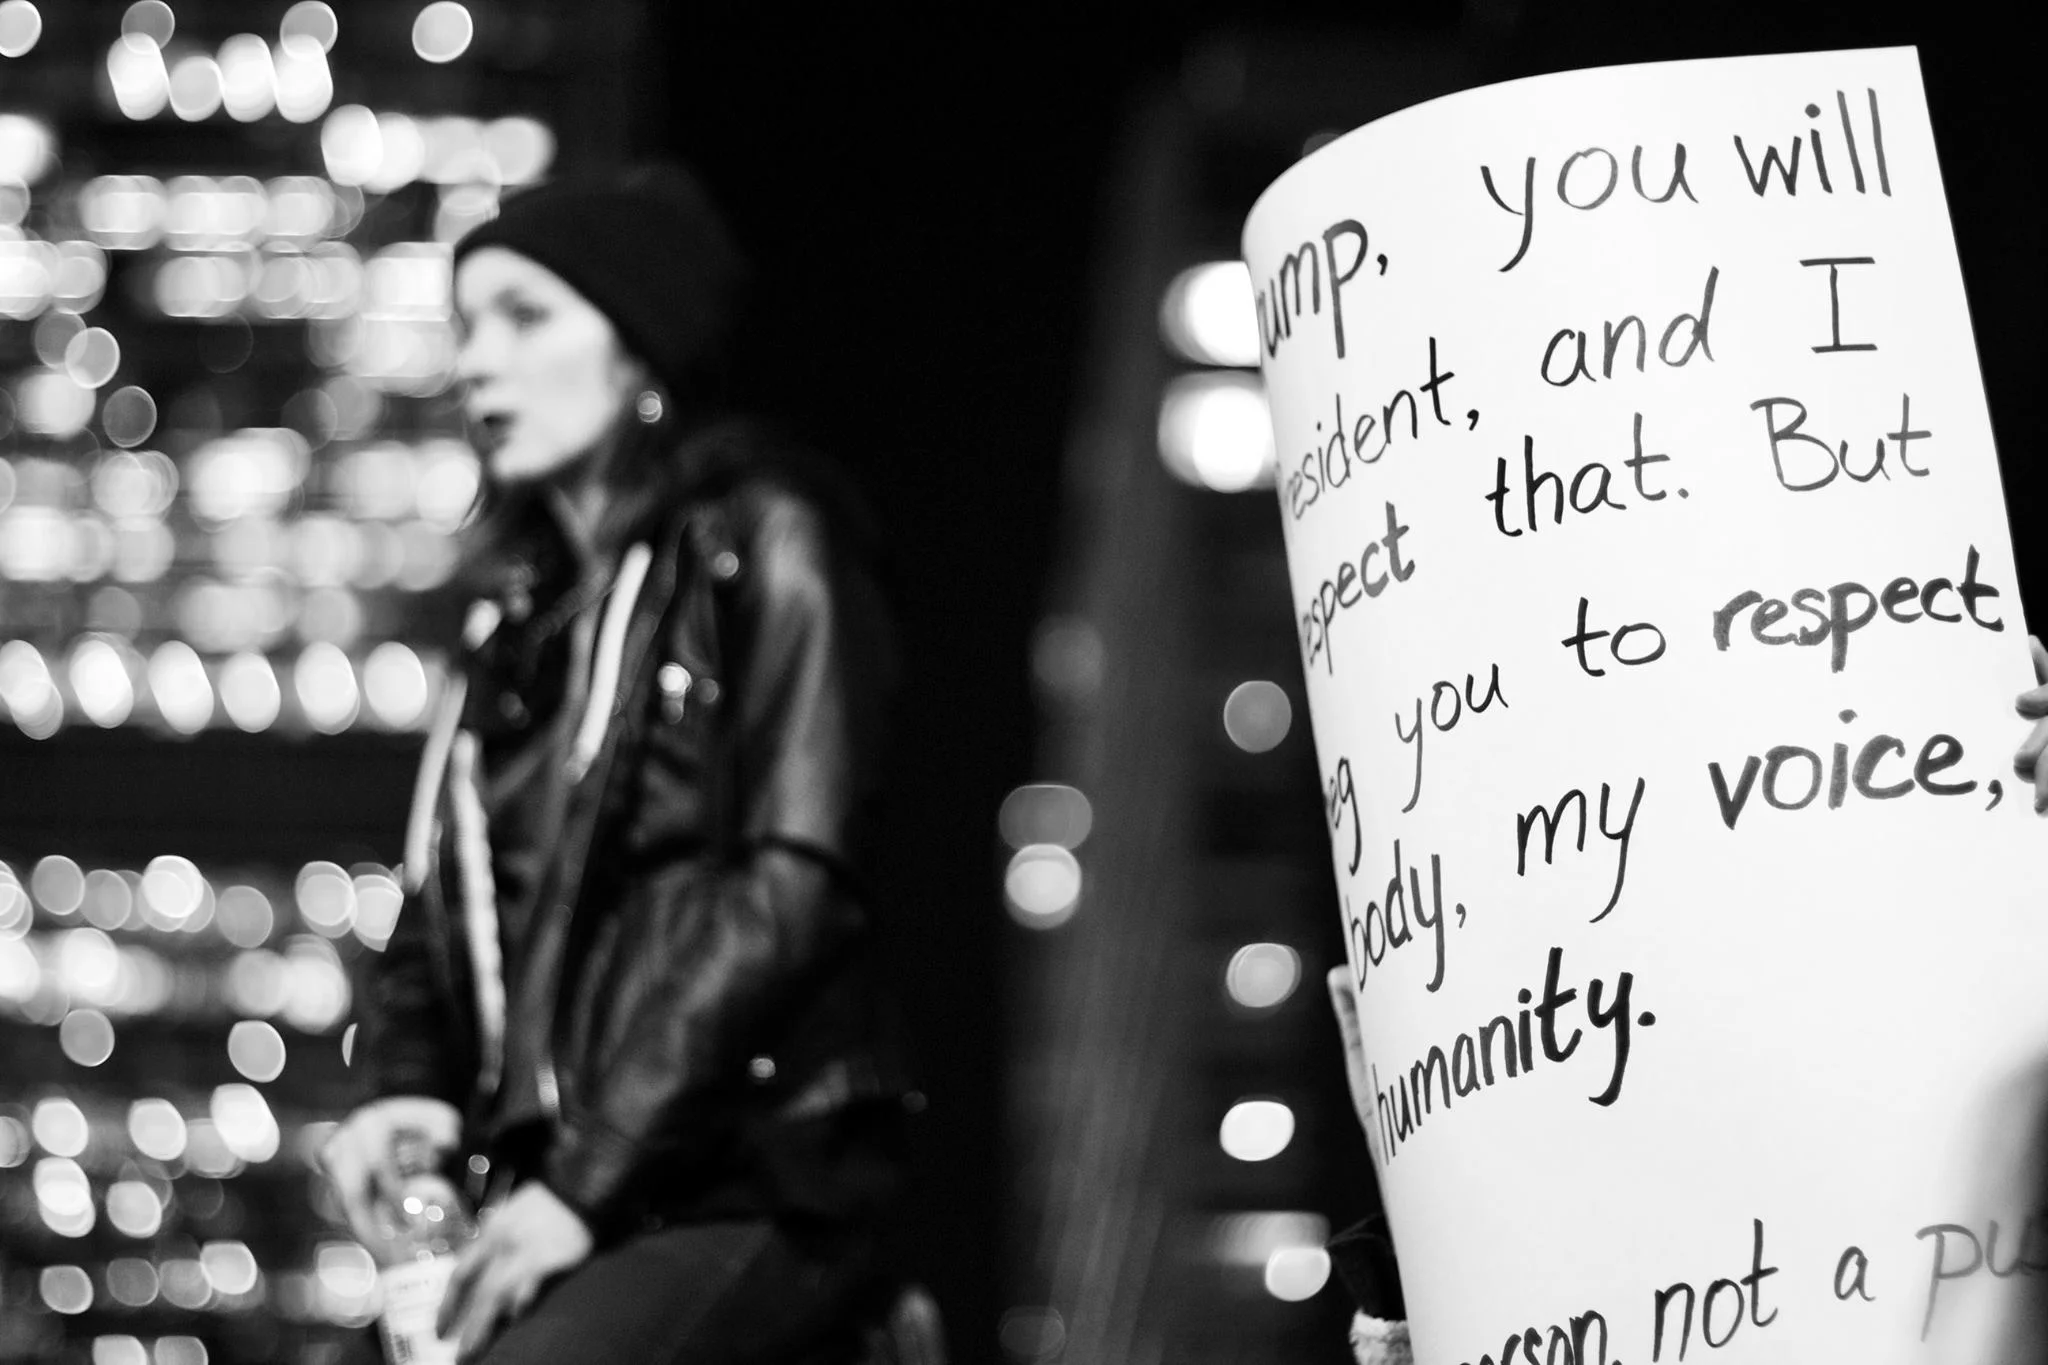 ump, you will
resident, and I
espect that. But
eg you to respect
body, my voice,
humanity.
erson, not a pu